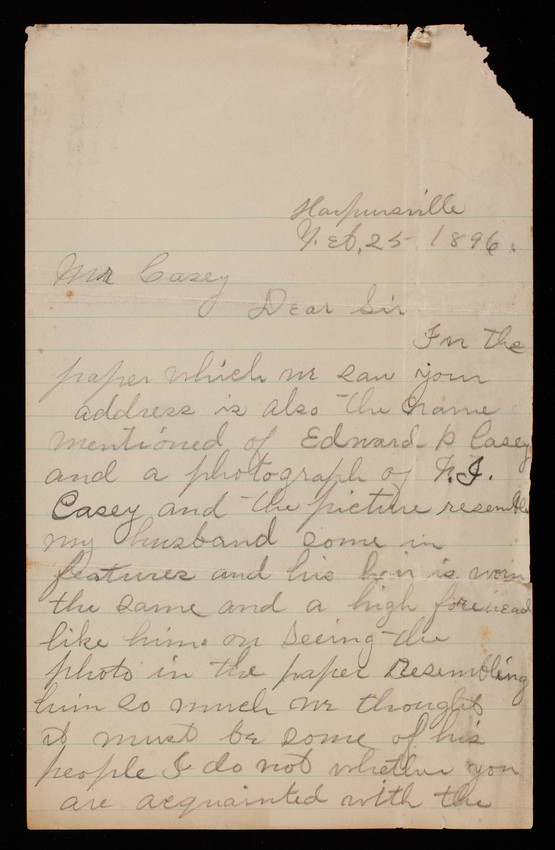 Harpursville
Feb, 25 1896.
Mr Casey
Dear Sir
In the
paper which we saw your
address is also the name
mentioned of Edward P Casey
and a photograph of
Casey and the picture resemble
my husband some in
features and his hair is worn
the same and a high forehead
like him. on seeing the
photo in the paper Resembling
him so much we thought
it must be some of his
people I do not whether you
are acquainted with the